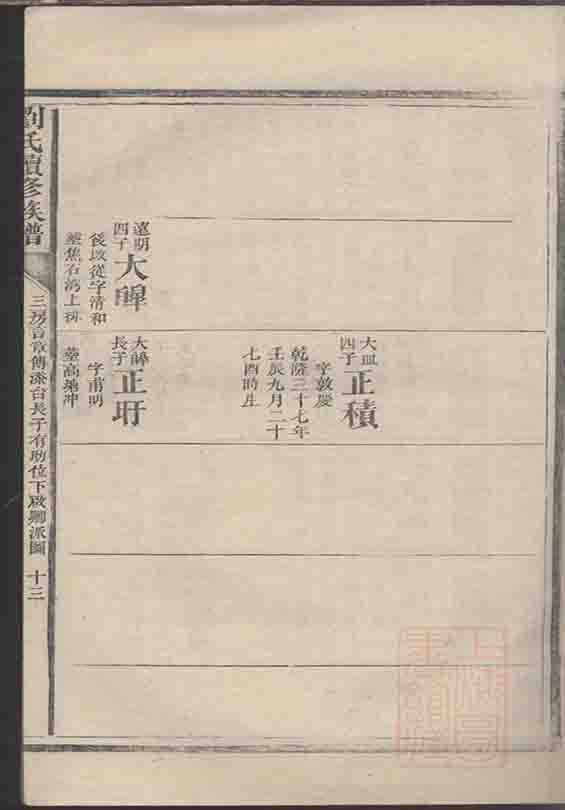 大皿
四子
正積
字敦慶
乾隆三十七年
壬辰九月二十
七酉時生
遠明
四子
大皥
後改從字清和
葬焦石灣上排
長子
正圩
字甫明
葬高塘冲
劉氏續修族譜
三房言章傳添台長子有助位下啟卿派圖 十三